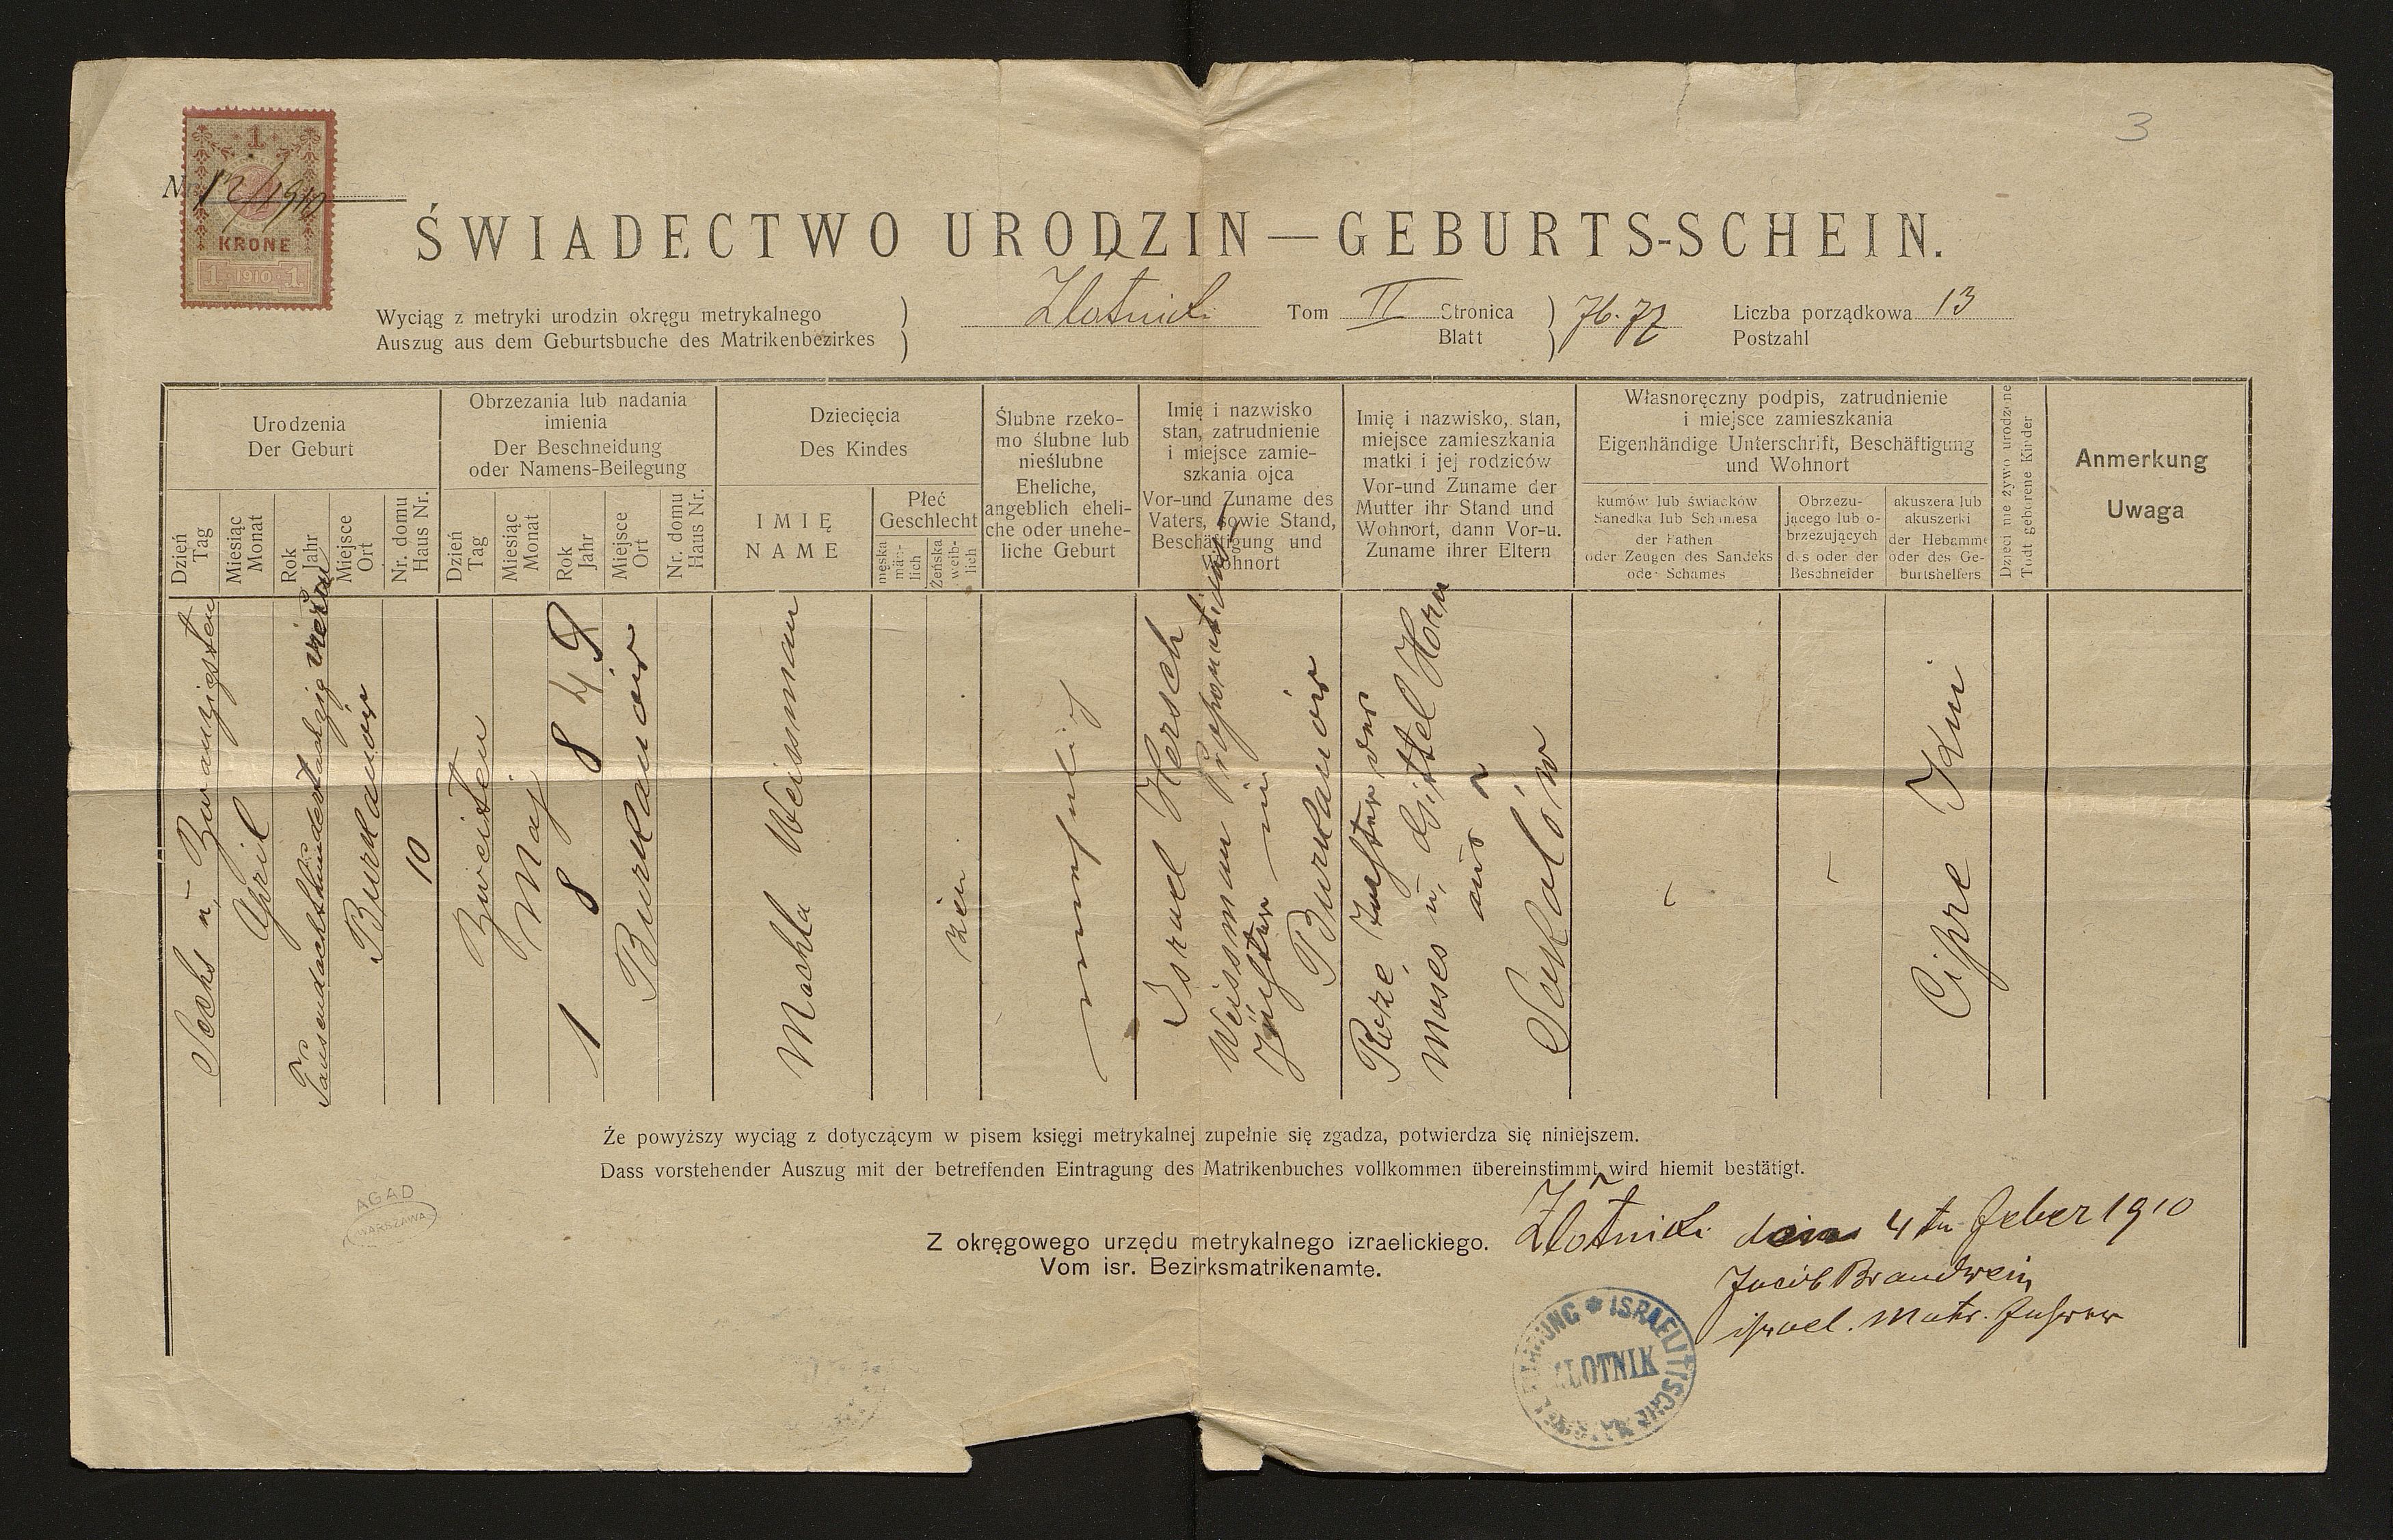 3
1
KRONE
1 1910 1
Nr 12/1910
ŚWIADECTWO URODZIN — GEBURTS-SCHEIN.
Wyciąg z metryki urodzin okręgu metrykalnego
Auszug aus dem Geburtsbuche des Matrikenbezirkes
Zlotniki Tom II Stronica
Blatt
76.77
Liczba porządkowa 13
Postzahl
Urodzenia
Der Geburt
Dzień
Tag
Miesiąc
Monat
Rok
Jahr
Miejsce
Ort
Nr. domu
Haus Nr.
Obrzezania lub nadania
imienia
Der Beschneidung
oder Namens-Beilegung
Dzień
Tag
Miesiąc
Monat
Rok
Jahr
Miejsce
Ort
Nr. domu
Haus Nr.
Dziecięcia
Des Kindes
IMIĘ
NAME
Płeć
Geschlecht
męska
män-
lich
Żeńska
weib-
lich
Ślubne rzeko-
mo ślubne lub
nieślubne
Eheliche,
angeblich eheli-
che oder unehe-
liche Geburt
Imię i nazwisko
stan, zatrudnienie
i miejsce zamie-
szkania ojca
Vor-und Zuname des
Vaters, sowie Stand,
Beschäftigung und
Wohnort
Imię i nazwisko, stan,
miejsce zamieszkania
matki i jej rodziców
Vor-und Zuname der
Mutter ihr Stand und
Wohnort, dann Vor-u.
Zuname ihrer Eltern
Własnoręczny podpis, zatrudnienie
i miejsce zamieszkania
Eigenhändige Unterschrift, Beschäftigung
und Wohnort
kumów lub świadków
Sandeka lub Schamesa
der Pathen
oder Zeugen des Sandeks
oder Schames
Obrzezu-
jącego lub o-
brzezujących
des oder der
Beschneider
akuszera lub
akuszerki
der Hebamme
oder des Ge-
burtshelfers
Dzieci nie żywo urodzone
Todt geborene Kinder
Anmerkung
Uwaga
Sechs u. Zwanzigsten
April
Tausendachthundertachtzig vier
Burkanów
10
Zweiten
Maj
1 8 8 4
Burkanów
Machla Weissmann
żeń
unehelich
Israel Hersch
Weissmann Propinations
Pächter in
Burkanów
Roze Tochter der
Moses u. Gittel Horn
aus
Sokolów
Cipre
Że powyższy wyciąg z dotyczącym w pisem księgi metrykalnej zupełnie się zgadza, potwierdza się niniejszem.
Dass vorstehender Auszug mit der betreffenden Eintragung des Matrikenbuches vollkommen übereinstimmt, wird hiemit bestätigt.
AGAD
WARSZAWA
Z okręgowego urzędu metrykalnego izraelickiego.
Vom isr. Bezirksmatrikenamte.
Zlotniki den 4tn Feber 1910
Jacob Brandwein
israel. Matr. Führer
ISRAELITISCHE
ZLOTNIK